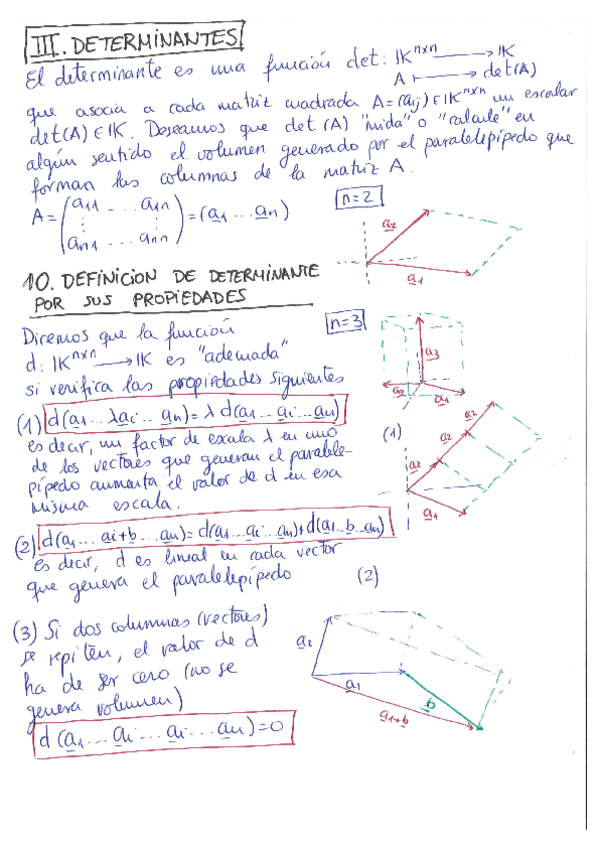 III. DETERMINANTES
El determinante es una función det: IK^nxn → IK
A ↦ det(A)
que asocia a cada matriz cuadrada A=(aij) ∈ IK^nxn un escalar
det(A) ∈ IK. Deseamos que det(A) "mida" o "calcule" en
algún sentido el volumen generado por el paralelepípedo que
forman las columnas de la matriz A.
A = (a11 ... a1n
⋮ ⋮
an1 ... ann) = (a1 ... an)
n=2
a2
a1
10. DEFINICION DE DETERMINANTE
POR SUS PROPIEDADES
Diremos que la función
d: IK^nxn → IK es "adecuada"
si verifica las propiedades siguientes
n=3
a3
a2
a1
(1) d(a1 ... λai ... an) = λ d(a1 ... ai ... an)
es decir, un factor de escala λ en uno
de los vectores que generan el paralele-
pípedo aumenta el valor de d en esa
misma escala.
(1)
a2
a2
a2
a1
(2) d(a1 ... ai+b ... an) = d(a1 ... ai ... an) + d(a1 ... b ... an)
es decir, d es lineal en cada vector
que genera el paralelepípedo
(2)
(3) Si dos columnas (vectores)
se repiten, el valor de d
ha de ser cero (no se
genera volumen)
a2
a1
b
a1+b
d(a1 ... ai ... ai ... an) = 0